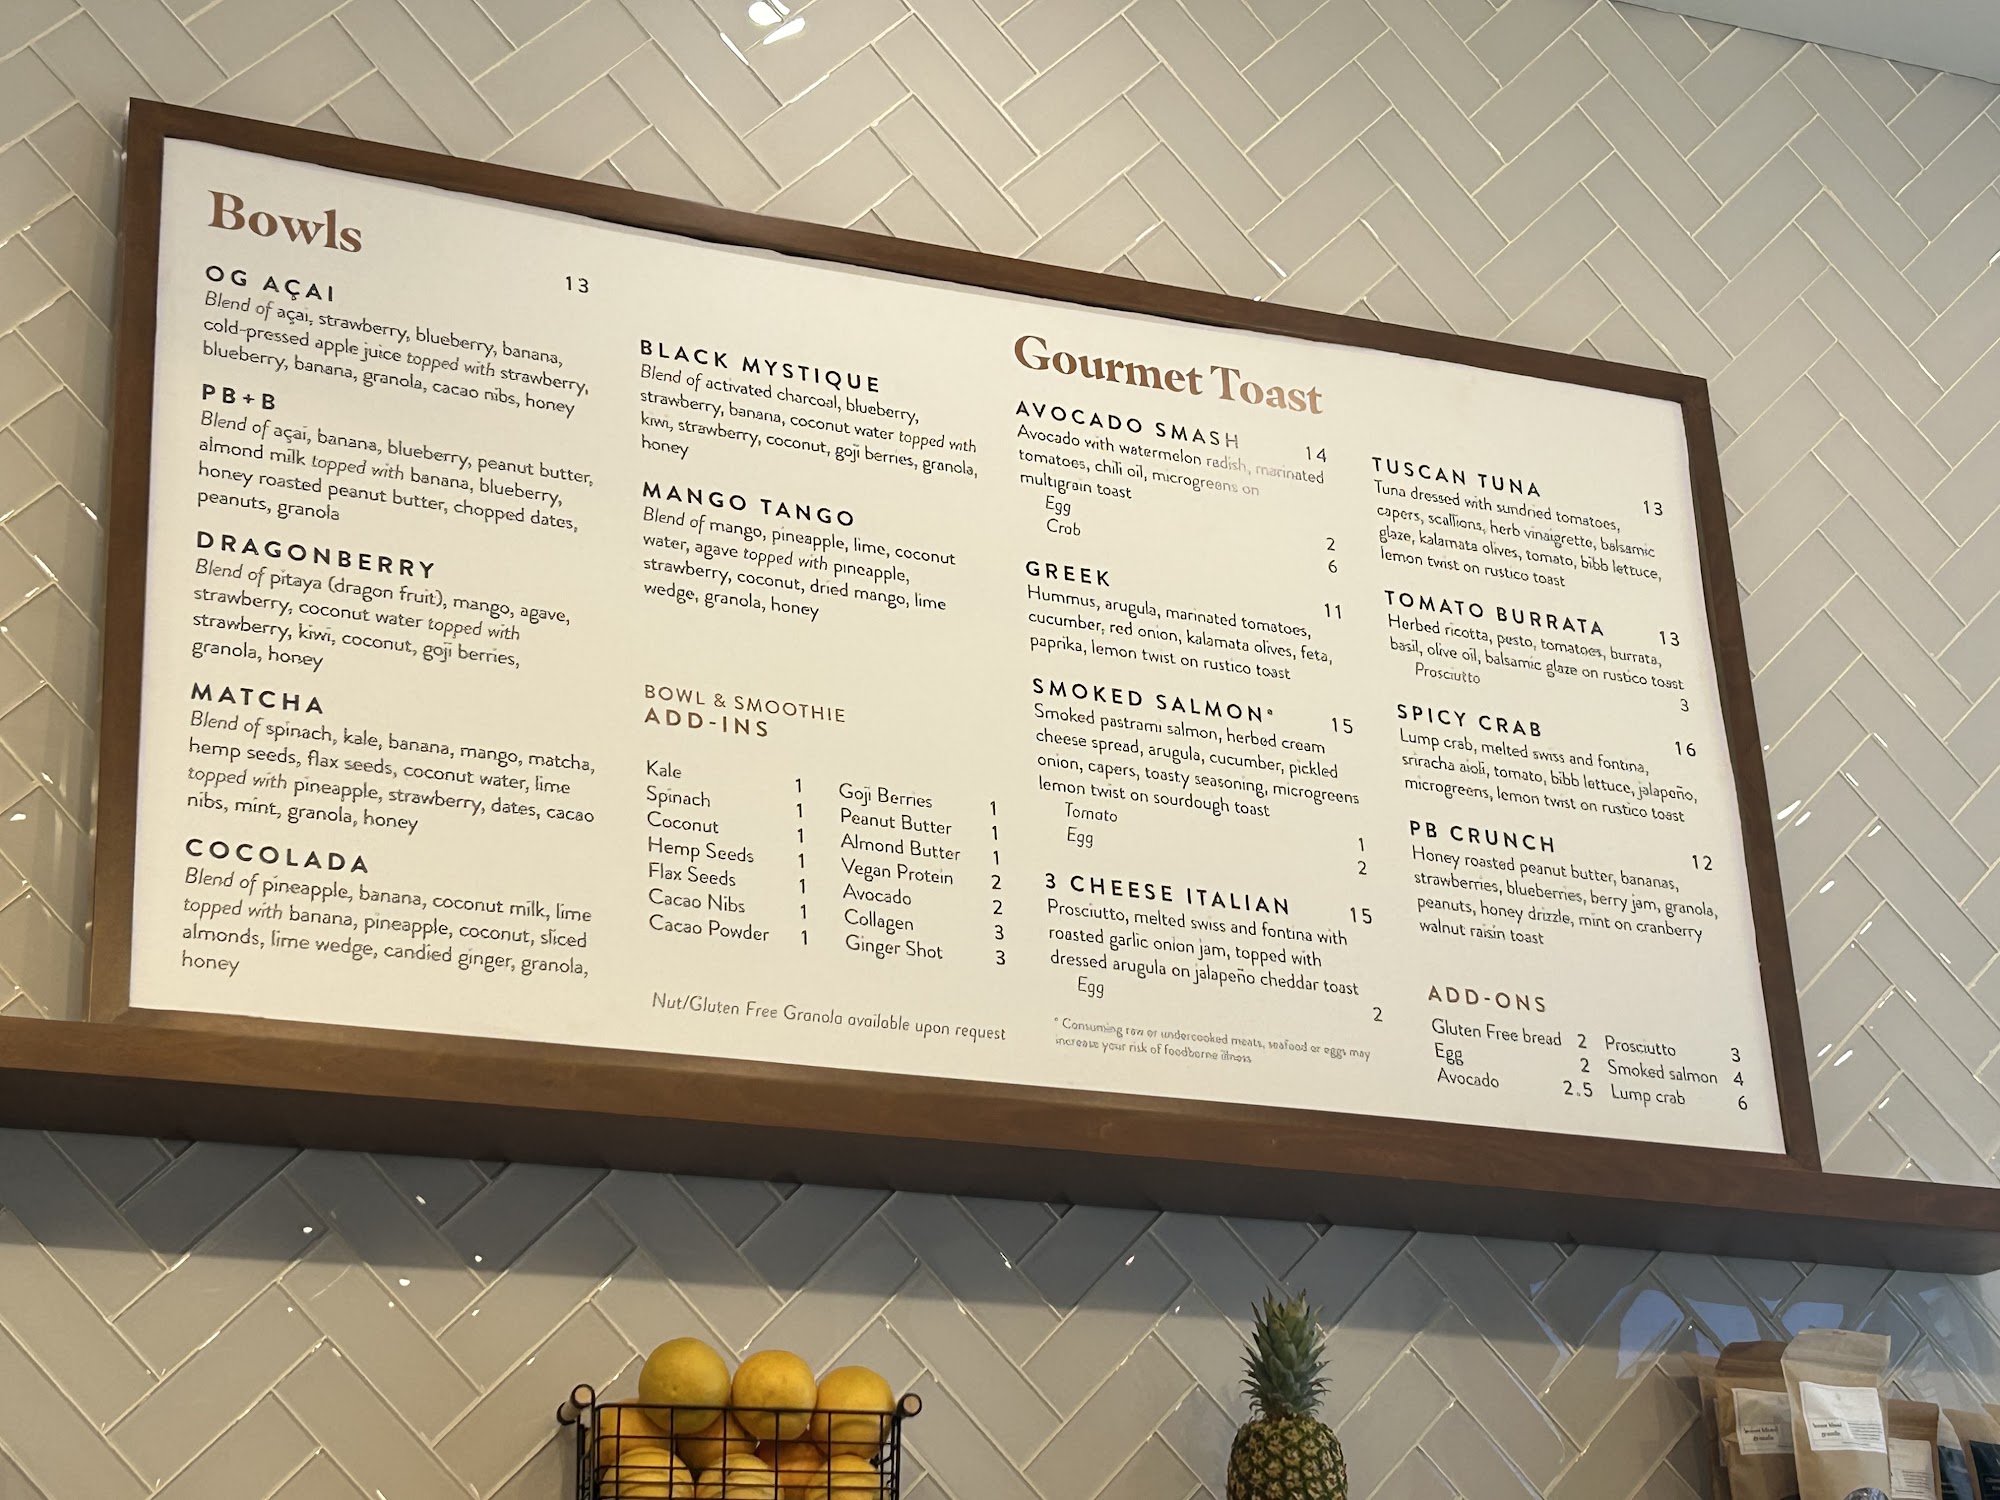 Bowls
OG AÇAI 13
Blend of açai, strawberry, blueberry, banana,
cold-pressed apple juice topped with strawberry,
blueberry, banana, granola, cacao nibs, honey
PB+B
Blend of açai, banana, blueberry, peanut butter,
almond milk topped with banana, blueberry,
honey roasted peanut butter, chopped dates,
peanuts, granola
DRAGONBERRY
Blend of pitaya (dragon fruit), mango, agave,
strawberry, coconut water topped with
strawberry, kiwi, coconut, goji berries,
granola, honey
MATCHA
Blend of spinach, kale, banana, mango, matcha,
hemp seeds, flax seeds, coconut water, lime
topped with pineapple, strawberry, dates, cacao
nibs, mint, granola, honey
COCOLADA
Blend of pineapple, banana, coconut milk, lime
topped with banana, pineapple, coconut, sliced
almonds, lime wedge, candied ginger, granola,
honey
BLACK MYSTIQUE
Blend of activated charcoal, blueberry,
strawberry, banana, coconut water topped with
kiwi, strawberry, coconut, goji berries, granola,
honey
MANGO TANGO
Blend of mango, pineapple, lime, coconut
water, agave topped with pineapple,
strawberry, coconut, dried mango, lime
wedge, granola, honey
BOWL & SMOOTHIE
ADD-INS
Kale 1
Spinach 1
Coconut 1
Hemp Seeds 1
Flax Seeds 1
Cacao Nibs 1
Cacao Powder 1
Goji Berries 1
Peanut Butter 1
Almond Butter 1
Vegan Protein 2
Avocado 2
Collagen 3
Ginger Shot 3
Nut/Gluten Free Granola available upon request
Gourmet Toast
AVOCADO SMASH 14
Avocado with watermelon radish, marinated
tomatoes, chili oil, microgreens on
multigrain toast
Egg 2
Crab 6
GREEK 11
Hummus, arugula, marinated tomatoes,
cucumber, red onion, kalamata olives, feta,
paprika, lemon twist on rustico toast
SMOKED SALMON* 15
Smoked pastrami salmon, herbed cream
cheese spread, arugula, cucumber, pickled
onion, capers, toasty seasoning, microgreens
lemon twist on sourdough toast
Tomato 1
Egg 2
3 CHEESE ITALIAN 15
Prosciutto, melted swiss and fontina with
roasted garlic onion jam, topped with
dressed arugula on jalapeño cheddar toast
Egg 2
* Consuming raw or undercooked meats, seafood or eggs may
increase your risk of foodborne illness
TUSCAN TUNA 13
Tuna dressed with sundried tomatoes,
capers, scallions, herb vinaigrette, balsamic
glaze, kalamata olives, tomato, bibb lettuce,
lemon twist on rustico toast
TOMATO BURRATA 13
Herbed ricotta, pesto, tomatoes, burrata,
basil, olive oil, balsamic glaze on rustico toast
Prosciutto 3
SPICY CRAB 16
Lump crab, melted swiss and fontina,
sriracha aioli, tomato, bibb lettuce, jalapeño,
microgreens, lemon twist on rustico toast
PB CRUNCH 12
Honey roasted peanut butter, bananas,
strawberries, blueberries, berry jam, granola,
peanuts, honey drizzle, mint on cranberry
walnut raisin toast
ADD-ONS
Gluten Free bread 2
Egg 2
Avocado 2.5
Prosciutto 3
Smoked salmon 4
Lump crab 6